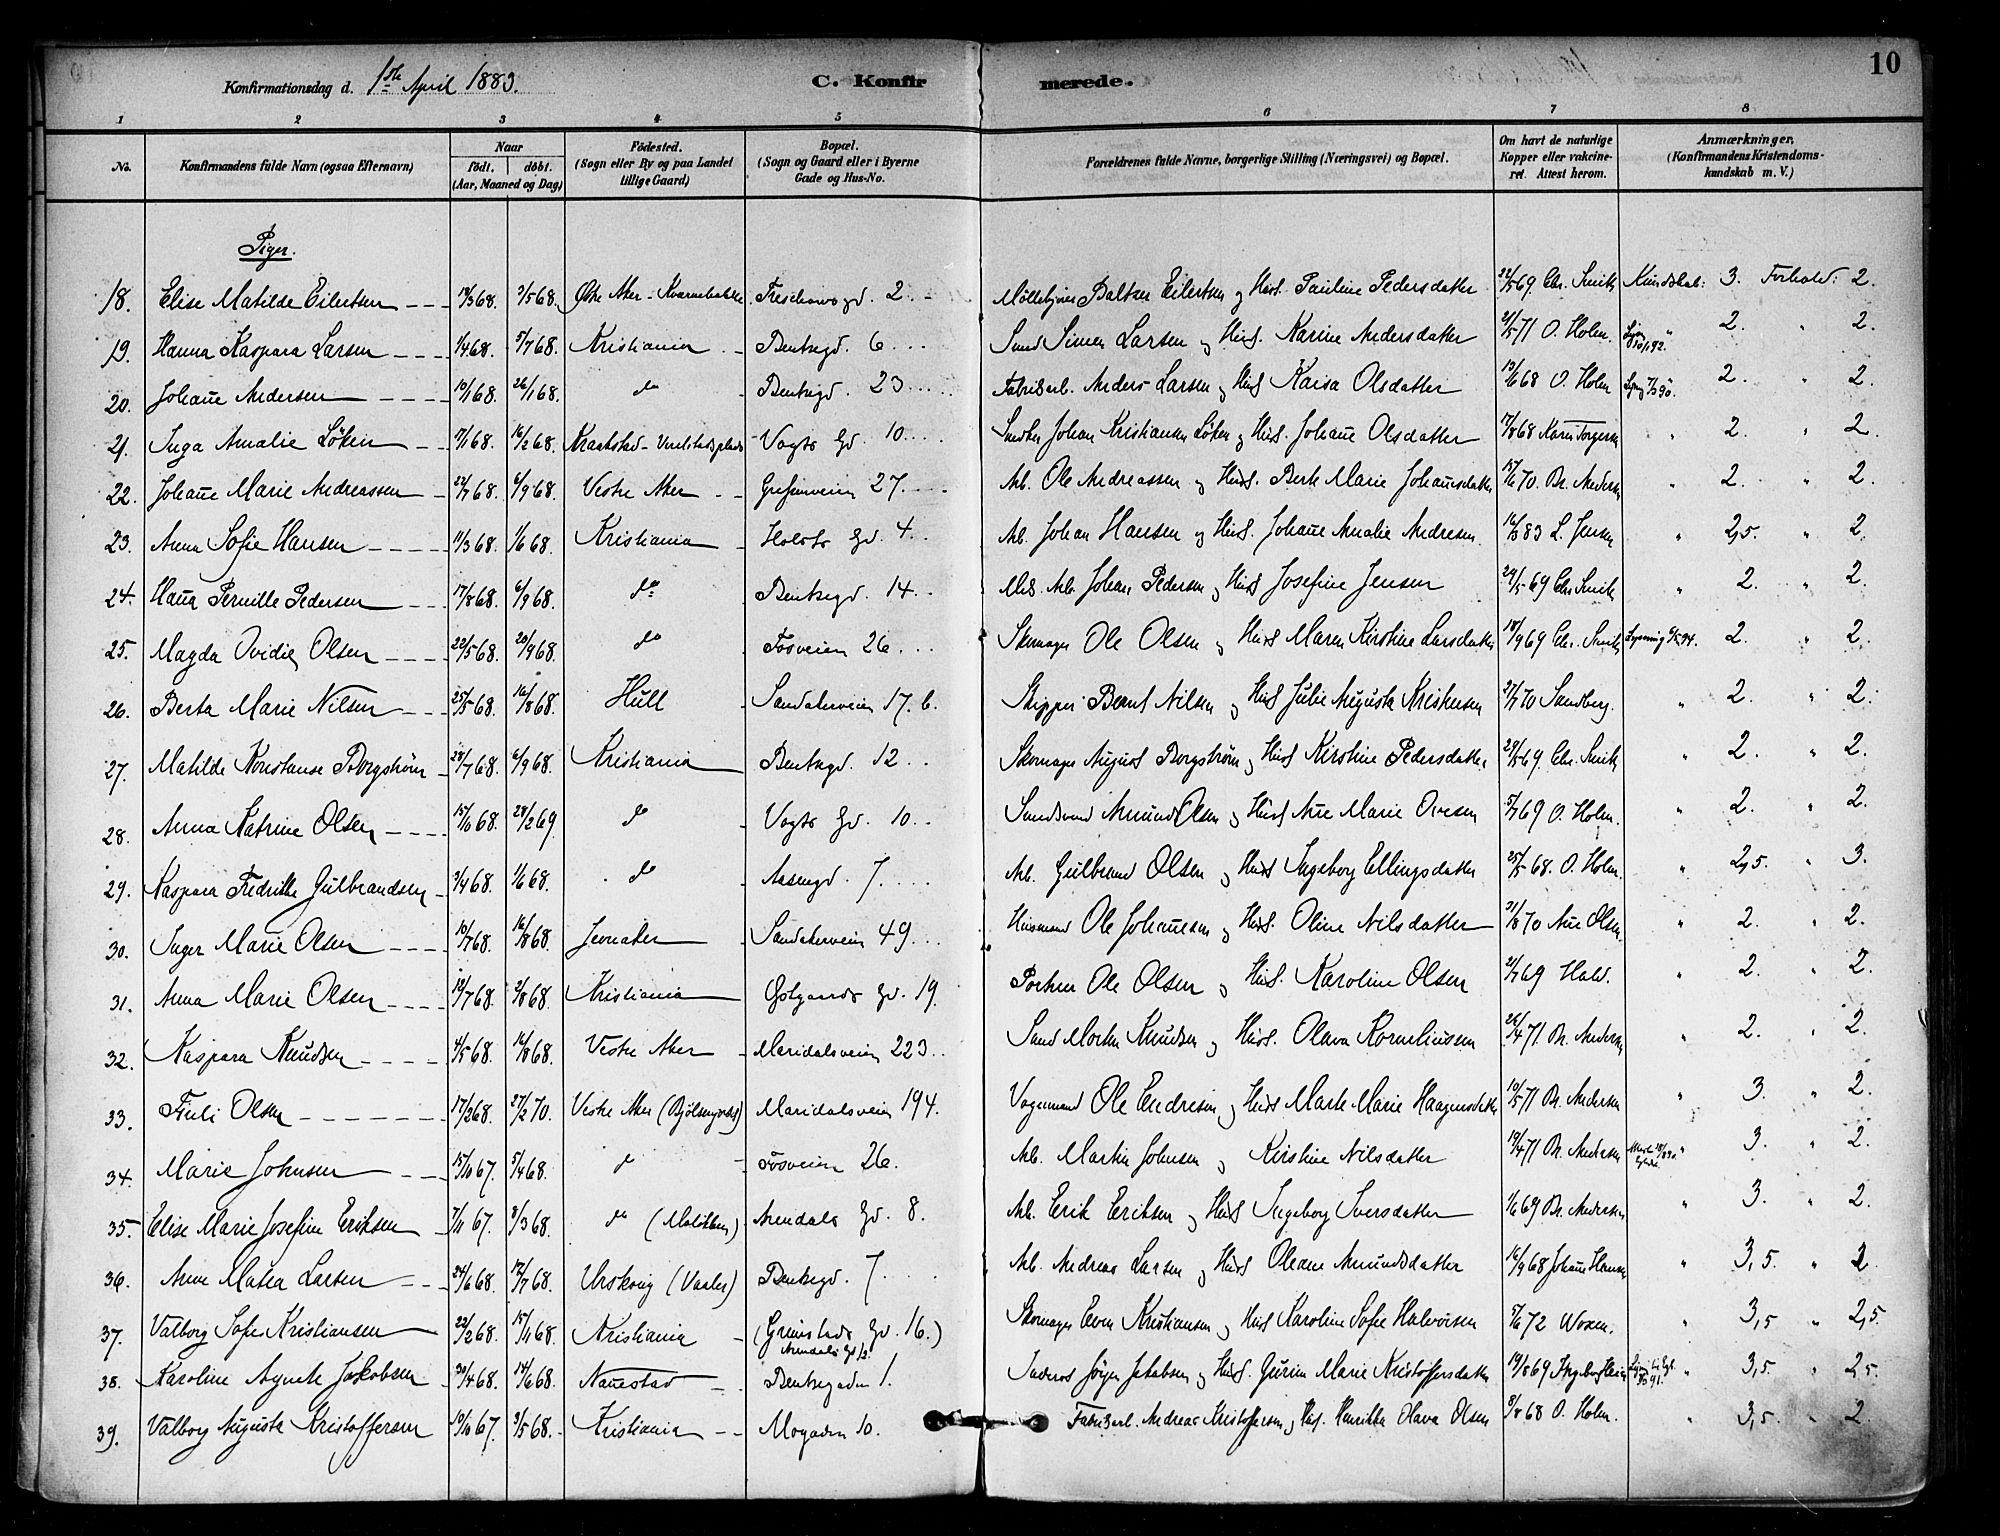 Konfirmationsdag d. 1ste April 1883. C. Konfirmerede. 10
1 2 3 4 5 6 7 8
No. Konfirmandens fulde Navn (ogsaa Efternavn) Naar födt. döbt. (Aar, Maaned og Dag) Födested. (Sogn eller By og paa Landet tillige Gaard) Bopæl. (Sogn og Gaard eller i Byerne Gade og Hus-No. Forældrenes fulde Navne, borgerlige Stilling (Næringsvei) og Bopæl. Om havt de naturlige Kopper eller vakcineret. Attest herom. Anmærkninger. (Konfirmandens Kristendomskundskab m. V.)
Piger.
18. Elise Matilde Eilertsen 3/5 68. Østre Aker - 2 Baltzer Eilertsen og Hust. Pauline Pedersdatter 22/5 69 Chr. Smith Kundskab: 3. Forhold: 2.
19. Hanna Kaspara Larsen 1/4 68. 5/7 68. Kristiania Bentsegd. 6 Smed Simen Larsen og Hust. Karine Andersdatter 71 O. Holm " 2. " 2.
20. Johanne Andersen 10/1 68. 26/1 68. do Bentsegd. 23 Fabrikarb. Anders Larsen og Hust Kaisa Olsdatter 13/6 68 O. Holm 2. " 2.
21. Inga Amalie Löken 7/1 68. 16/2 68. Kraakstad - Vogts Gd. 10 Johan Kristiansen Löken og Hust. Johanne Olsdatter 17/8 68 Karen Torgersen " 2. " 2.
22. Johanne Marie Andreassen 22/7 68. 6/9 68. Vestre Aker Grefsenveien 27. Arb. Ole Andreassen og Hust. Berte Marie Johannesdatter 15/6 70. Br. Andersen " 2. " 2.
23. Anna Sofie Hansen 11/3 68. 1/6 68. Kristiania Holsts Gd. 4. Arb. Johan Hansen og Hust. Johanne Amalie Andresen. 16/3 83 L. Jensen " 2,5. " 2.
24. Hanna Pernille Pedersen 17/8 68. 6/9 68. do Bentsegd. 14. Arb. Johan Pedersen og Hust Josefine Jensen 24/5 69 Chr. Smith " 2. " 2.
25. Magda Ovidie Olsen 22/5 68. 20/9 68. do Fosveien 26. Skomager Ole Olsen og Hust Maren Kirstine Larsdatter 18/9 69 Chr. Smith Lysning 6/5 94. 2. " 2.
26. Berta Marie Nilsen 25/5 68. 16/8 68. Hull Sandakerveien 17. b. Skipper Bernt Nilsen og Hust Julie Augusta Kristensen 27/7 70 Sandberg. " 2. " 2.
27. Matilde Konstanse Borgström 28/7 68. 6/9 68. Kristiania Bentsegd. 12 Skomager August Borgström og Hust Kirstine Pedersdatter 29/5 69. Chr. Smith " 2. " 2.
28. Anna Katrine Olsen 15/10 68. 28/2 69 do Vogts Gd. 10. Amund Olsen og Hust Ane Marie Ovesen 5/7 69 O. Holm. " 2. " 2.
29. Kaspara Fredrikke Gulbrandsen 3/4 68. 1/6 68. do Aasengd. 7. Arb. Gulbrand Olsen og Hust Ingeborg Ellingsdatter 25/5 68. O. Holm. " 2,5. " 3.
30. Inger Marie Olsen 10/7 68. 16/8 68. Jevnaker Sandakerveien 49. Husmand Ole Johannesen og Hust. Oline Nilsdatter 21/8 70 Ane Olsen. " 2. " 2.
31. Anna Marie Olsen 19/7 68. 2/8 68. Kristiania Gd. 19. Ole Olsen og Hust. Karoline Olsen 2/7 69 Hald. " 2. " 2.
32. Kaspara Knudsen 4/5 68. 16/8 68. Vestre Aker Maridalsveien 223 Smed Morten Knudsen og Hust. Olava Korneliussen 26/4 71. Br. Andersen " 2. " 2.
33. Olsen 17/2 68. 27/2 70. Vestre Aker Maridalsveien 194. Vognmand Ole Endresen og Hust Marte Marie Haagensdatter 10/5 71 Br. Andersen " 3. " 2.
34. Marie Johnsen 15/10 67. 5/4 68. do Fosveien 26. Arb. Martin Johnsen og Kirstine Nilsdatter 19/4 71 Br. Andersen " 3. " 2.
35. Elise Marie Josefine Eriksen 7/11 67. 8/3 68. do Arendals Gd. 8. Arb. Erik Eriksen og Hust Ingeborg Iversdatter 1/6 69 Br. Andersen " 3. " 2.
36. Anne Matea Larsen 24/6 68. 12/7 68. Urskoug (Vaaler) Bentsegd. 7. Arb. Andreas Larsen og Hust Oleane Amundsdatter 16/9 68 Johanne Hansen " 3,5. " 2.
37. Valborg Sofie Kristiansen 22/2 68. 15/11 68. Kristiania (Grimstads Gd. 16.) Arendals Gd Skomager Even Kristiansen og Hust Karoline Sofie Halvorsen 5/6 72 Woxen. " 3,5 " 2,5.
38. Karoline Agnete Jakobsen 30/4 68. 14/6 68. Nannestad Bentsegaden 1. Jörgen Jakobsen og Hust. Gurine Marie Kristoffersdatter 19/5 69 " 3,5. " 2,5.
39. Valborg Augusta Kristoffersen 10/10 67. 3/5 68. Kristiania Mogaden 10. Fabrikarb. Andreas Kristoffersen, og Henrikka Olava Olsen 8/8 68 O. Holm. " 3,5. " 2.